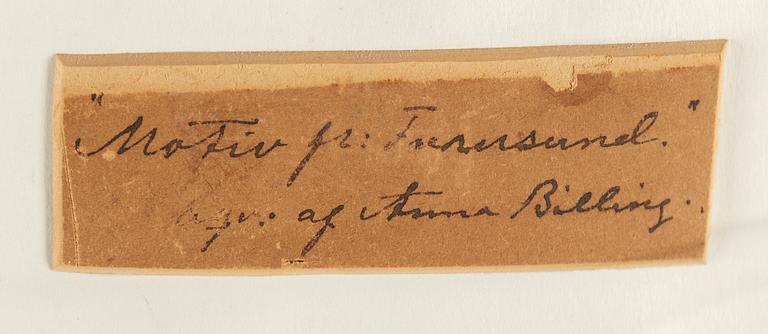 "Motiv fr: Furusund."
aqv. af Anna Billing.